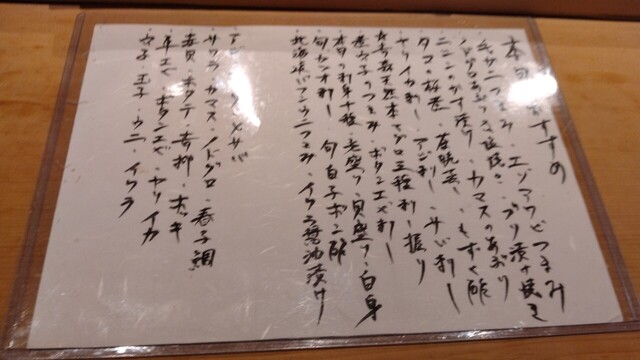 本日のおすすめ
毛ガニつまみ・エゾアワビつまみ
ノドグロあぶり・塩焼き・ブリ漬け焼き
ニシンのかす漬け・カマスのあぶり
タコの桜煮・茎・もずく酢
ヤリイカ刺し・アジ刺し・サバ刺し
天然本マグロ三種刺し・握り
煮穴子のつまみ・ボタンエビ刺し
本日の刺身十種・光盛り・貝盛り・白身
旬カツオ刺し・旬白子ポン酢
北海バフンウニつまみ・イクラ醤油漬け
アジ・〆サバ
サワラ・カマス・ノドグロ・春子鯛
赤貝・ホタテ・青柳・ホッキ
車エビ・ボタンエビ・ヤリイカ
穴子・玉子・ウニ・イクラ